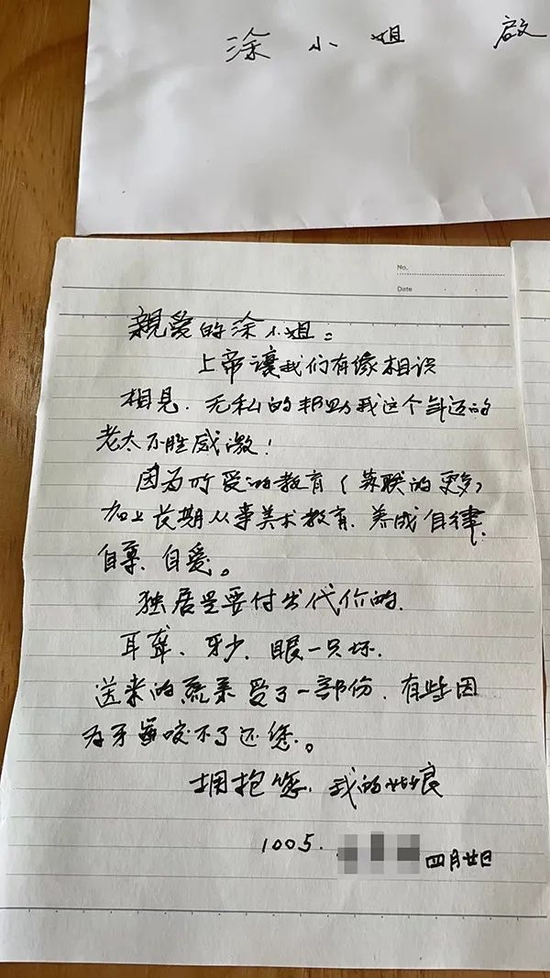 涂小姐 啟
No.
Date
親爱的涂小姐:
上帝讓我们有缘相识
相见.无私的帮助我这个年迈的
老太不胜感激!
因为所受的教育(苏联的更多)
加上长期从事美术教育.养成自律.
自尊.自爱。
独居是要付出代价的.
耳聋、牙少.眼一只坏.
送来的蔬菜受了一部份.有些因
为牙咬不了还您。
拥抱您.我的姑娘
1005. 四月廿日